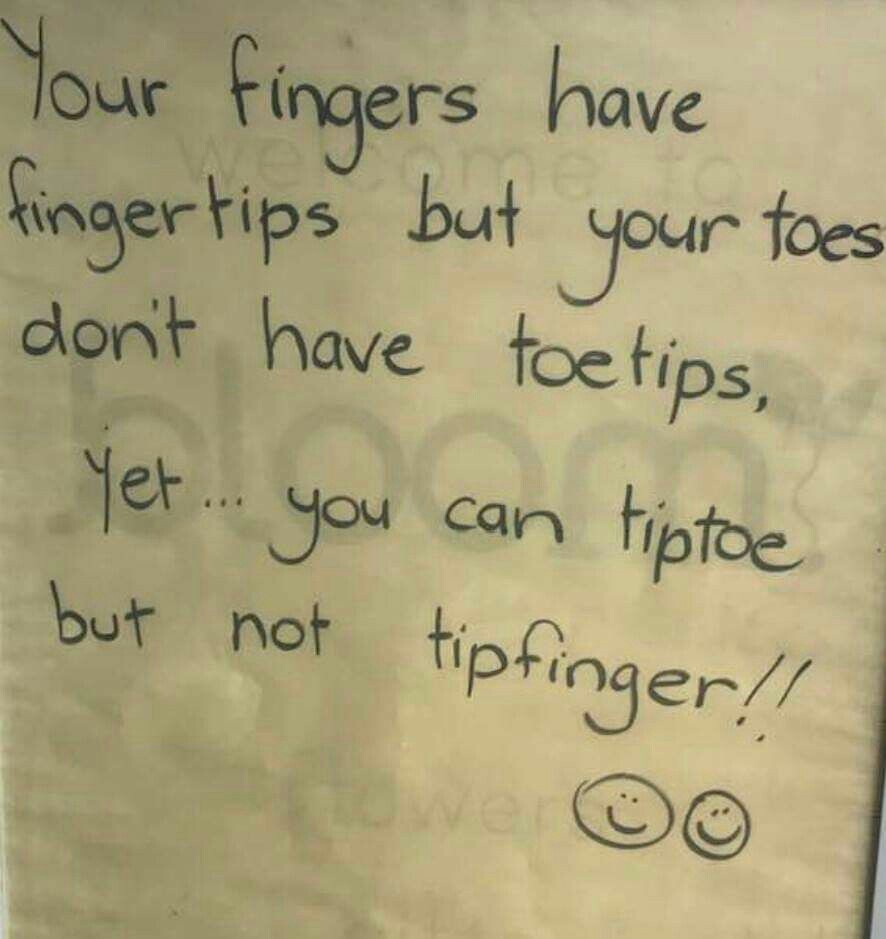 Your fingers have
fingertips but your toes
don't have toetips,
Yet... you can tiptoe
but not tipfinger!!
welcome to
bloom
flowers